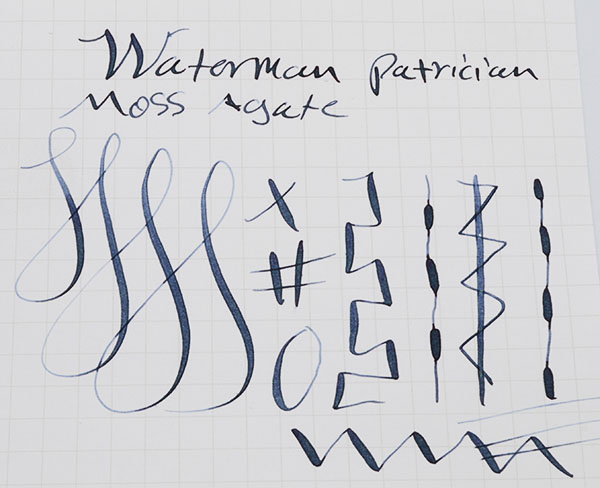 Waterman Patrician
Moss Agate